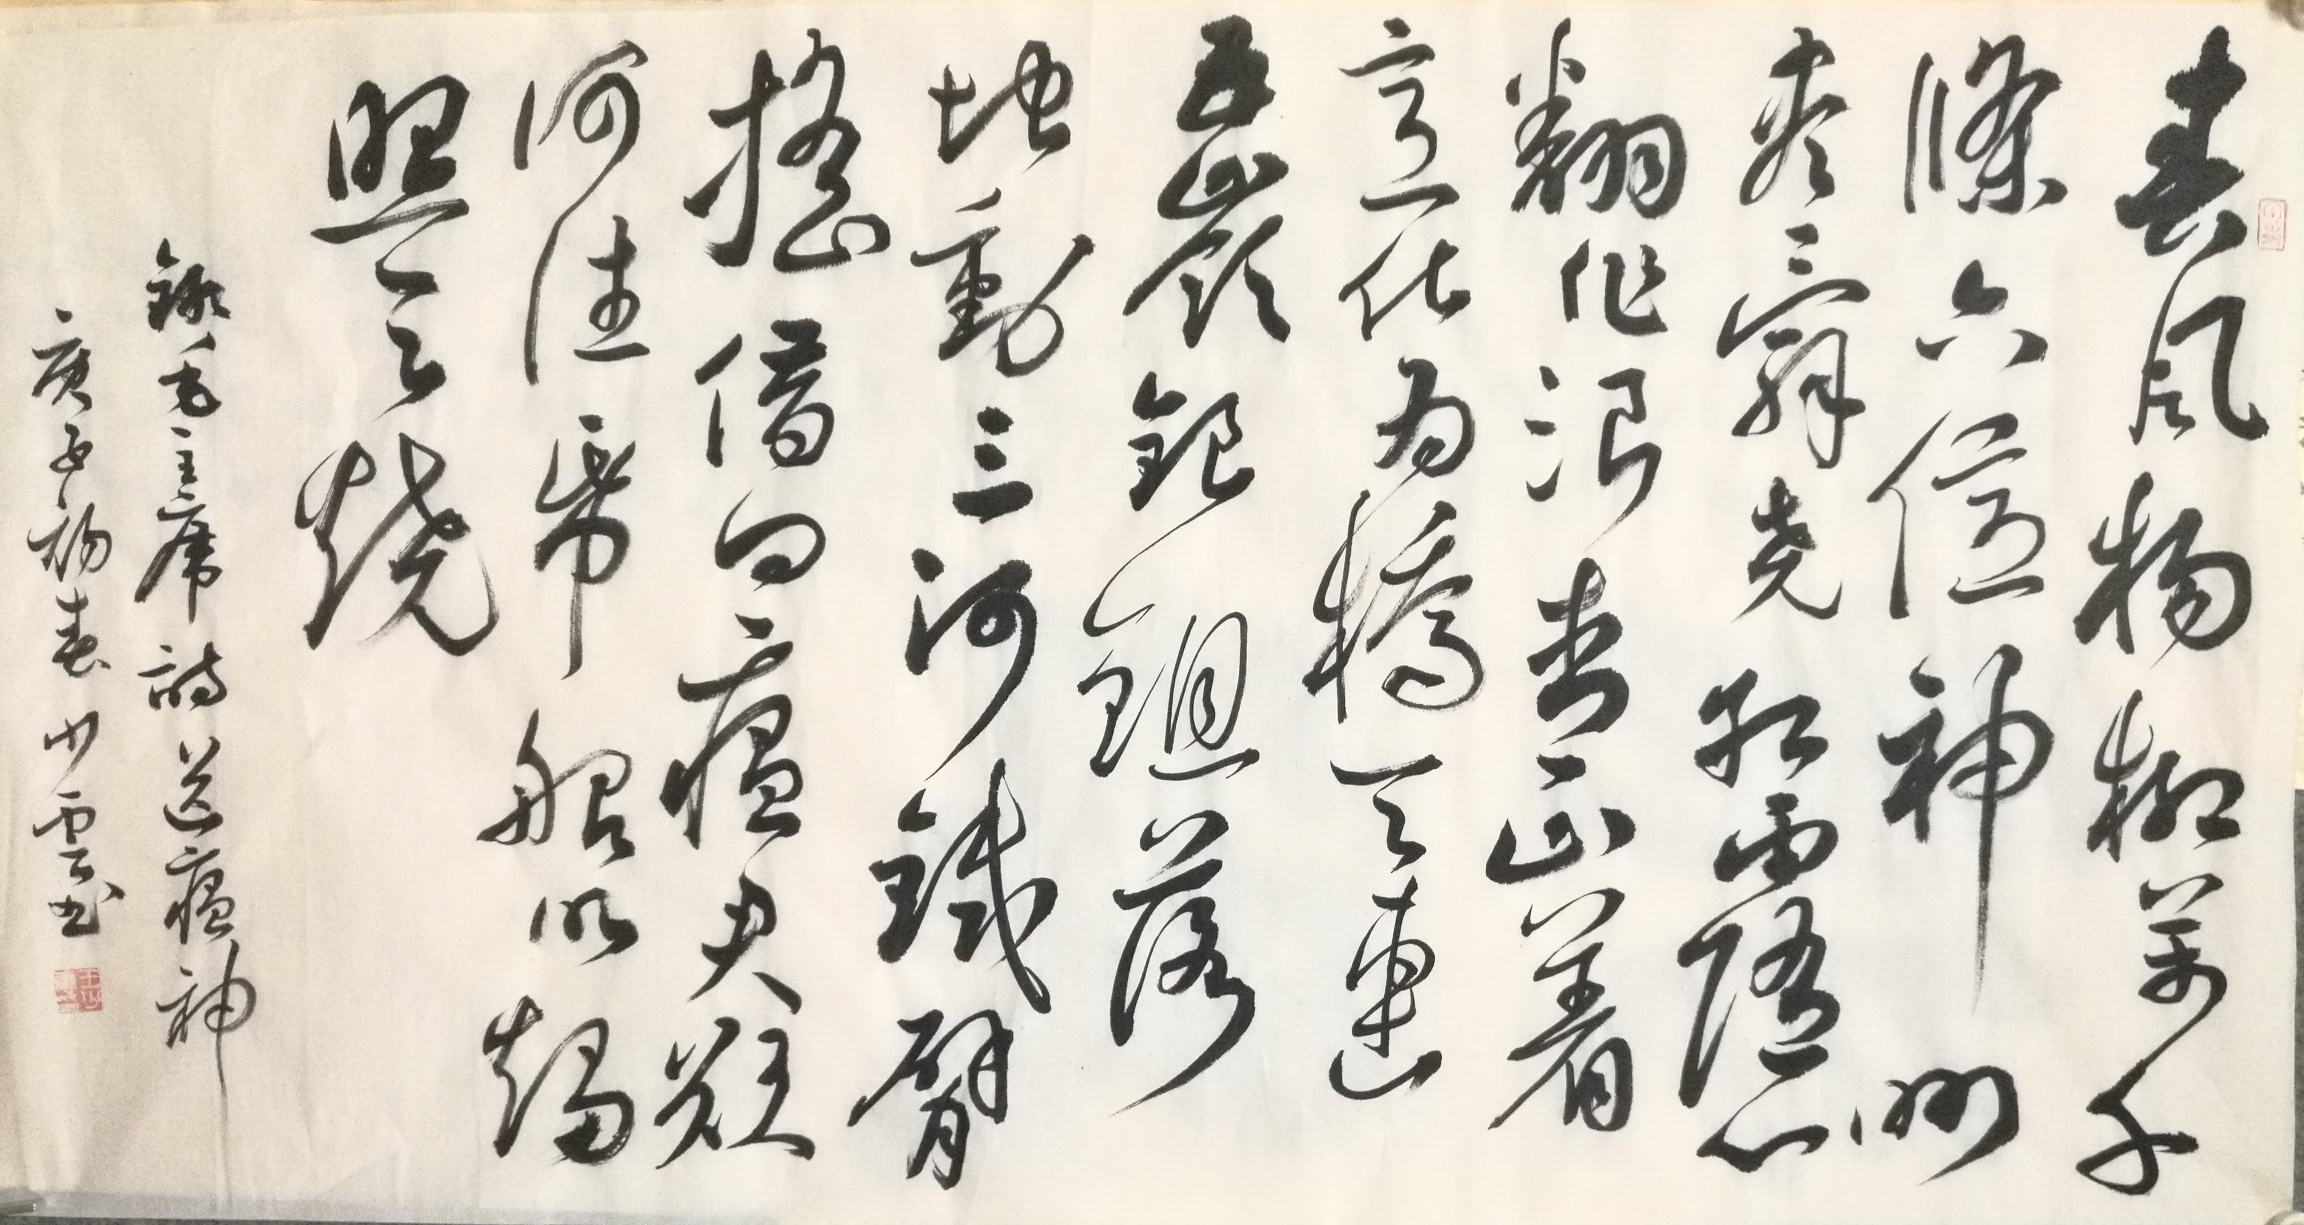 春風楊柳萬千
條六億神州
盡舜堯紅雨隨心
翻作浪青山着
意化為橋天連
五嶺銀鉏落
地動三河鐵臂
搖借問瘟君欲
何往帋船明燭
照天燒
錄毛主席詩送瘟神
庚子初春少雲書